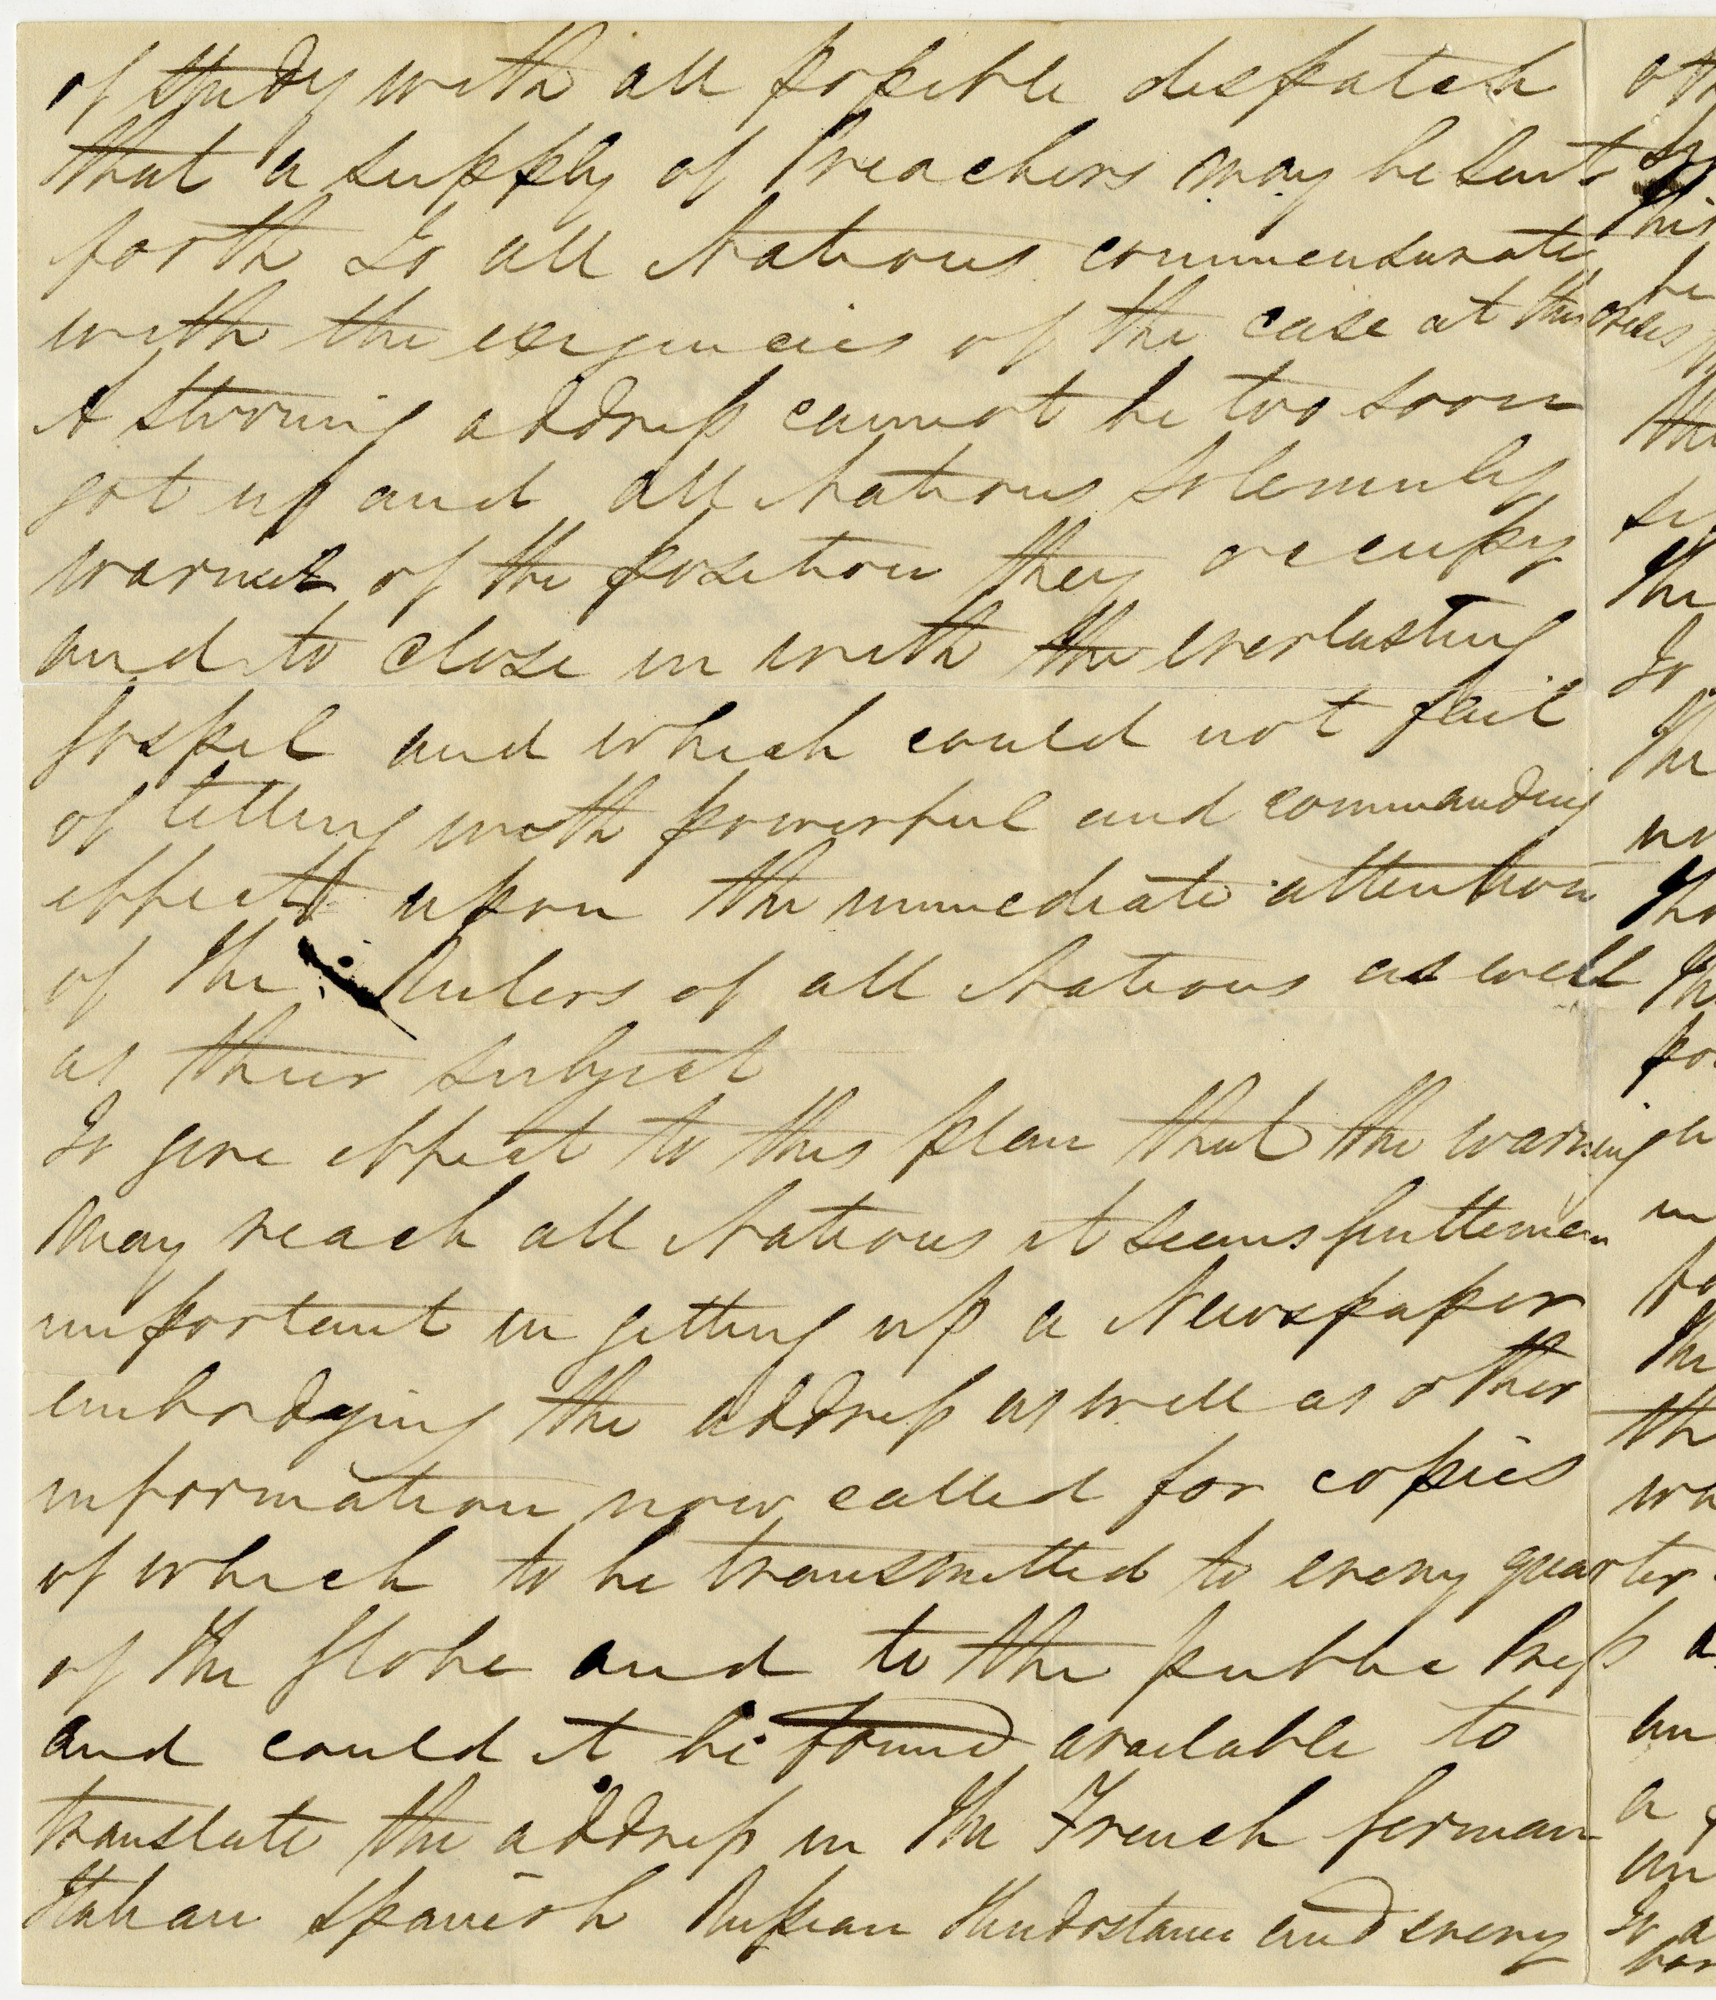 of study with all possible despatch
that a supply of Preachers may be sent
forth to all Nations commensurate
with the exigencies of the case at this crisis
A strong address cannot be too soon
got up and all Nations solemnly
warned of the position they occupy
and to close in with the everlasting
Gospel and which could not fail
of telling with powerful and commanding
effect upon the immediate attention
of the Rulers of all Nations as well
as their subject
To give effect to this plan that the warning
may reach all Nations it seems
important in getting up a Newspaper
embodying the address as well as other
information now called for copies
of which to be transmitted to every quarter
of the Globe and to the public Press
and could it be found available to
translate the address in the French German
Italian Spanish Russian and every